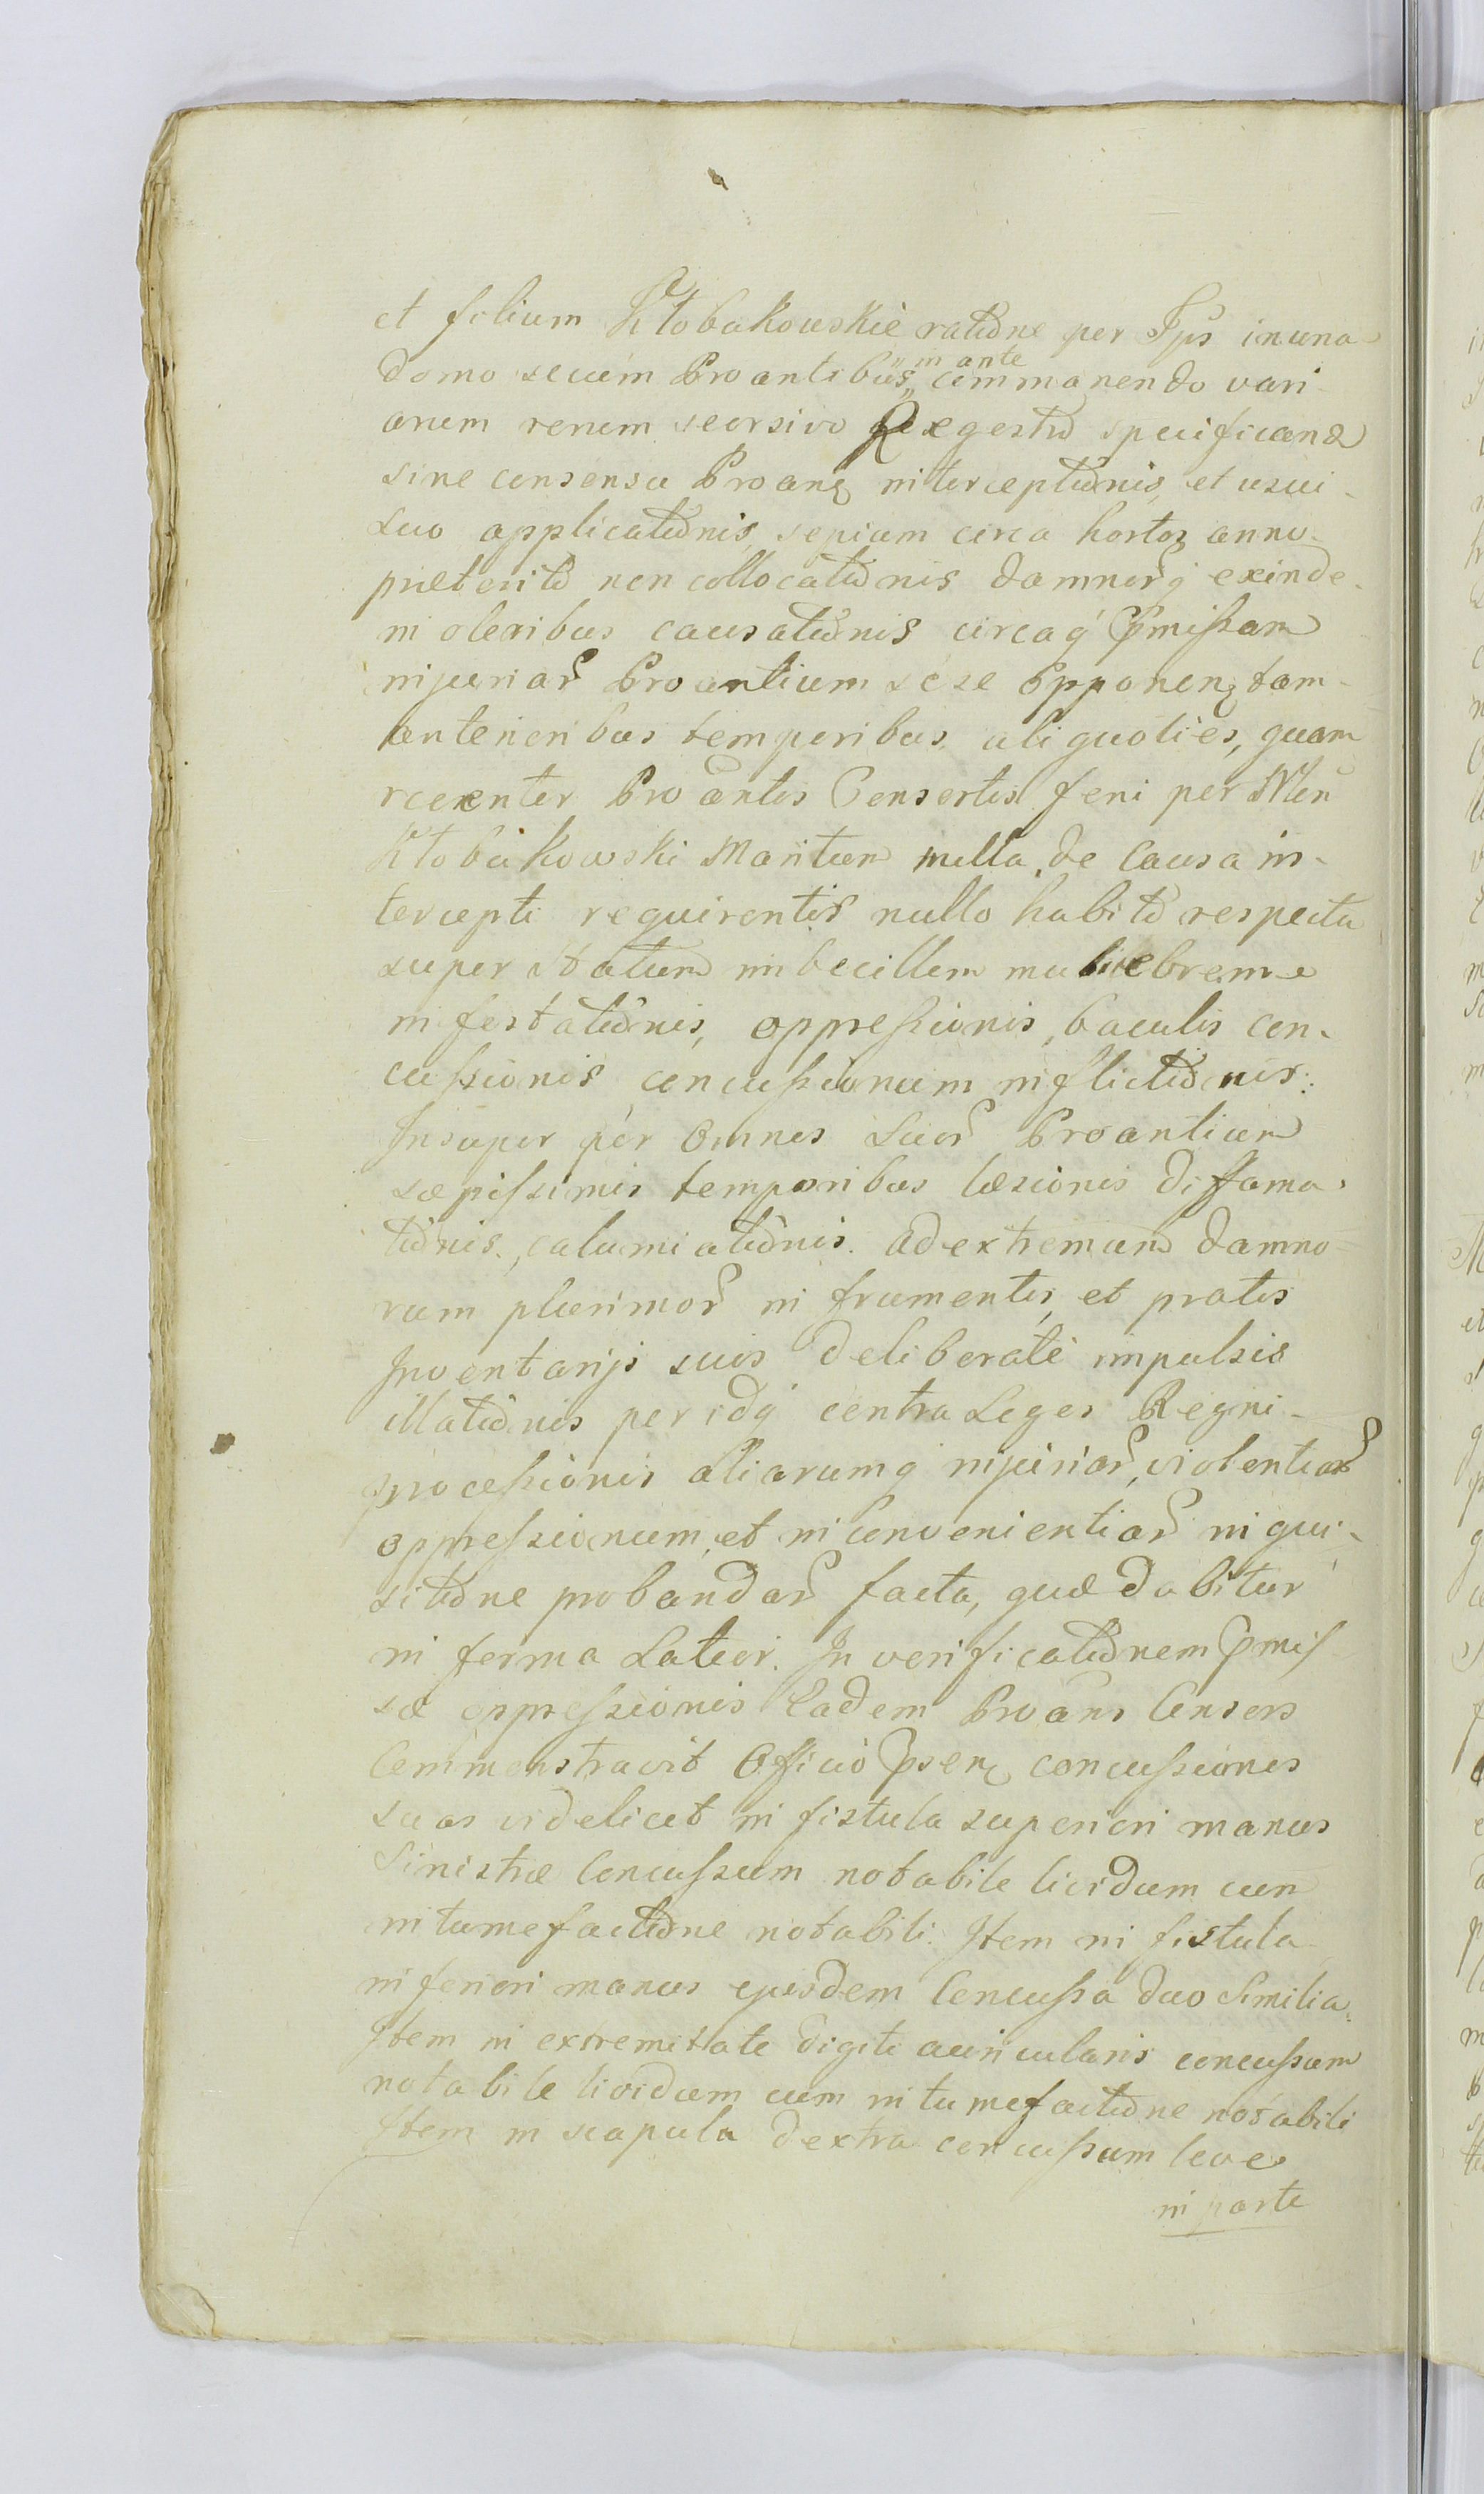 et filium Kłobukowskie ratione per Ips in una
domo secum Proantibus, in ante commanendo vari
arum rerum seorsivo Regestro specificand
sine consensu Proanq interceptionis, et usui
suo applicationis, sepium circa hortos anno
præterito non collocationis damnorq exinde
in oleribus causationis circaq pmissam
injuriar Proantium sese opponenq tam
anterioribus temporibus aliquoties, quam
recenter Proantis Consortis feni per Mem
Kłobukowski Maritum nulla de causa in-
tercepti requirentis nullo habito respectu
super statum imbecillem muliebrem
infestationis, oppressionis, baculis con-
cussionis concussionum inflictionis:
Insuper per omnes suos Proantium
sæpissimis temporibus læsionis diffama-
tionis, calumiationis. ad extremum damno-
rum plurimor in frumentis, et pratis
Inventarijs suis deliberate impulsis
illationis per idq contra Leges Regni
processionis aliarumq injuriar, violentiar
oppressionum, et inconvenientiar inqui-
sitione probandar facta, quæ dabitur
in forma Latior. In verificationem pmis
sæ oppressionis Eadem Proans Consors
Commonstravit Officio psenq concussiones
suas videlicet in fistula superiori manus
Sinistræ Concussum notabile lividum cum
intumefactione notabili. Item in fistula
inferiori manus ejusdem Concussa duo Similia.
Item in extremitate digiti auricularis concussum
notabile lividum cum intumefactione notabili
Item in scapula dextra concussum leve
in parte